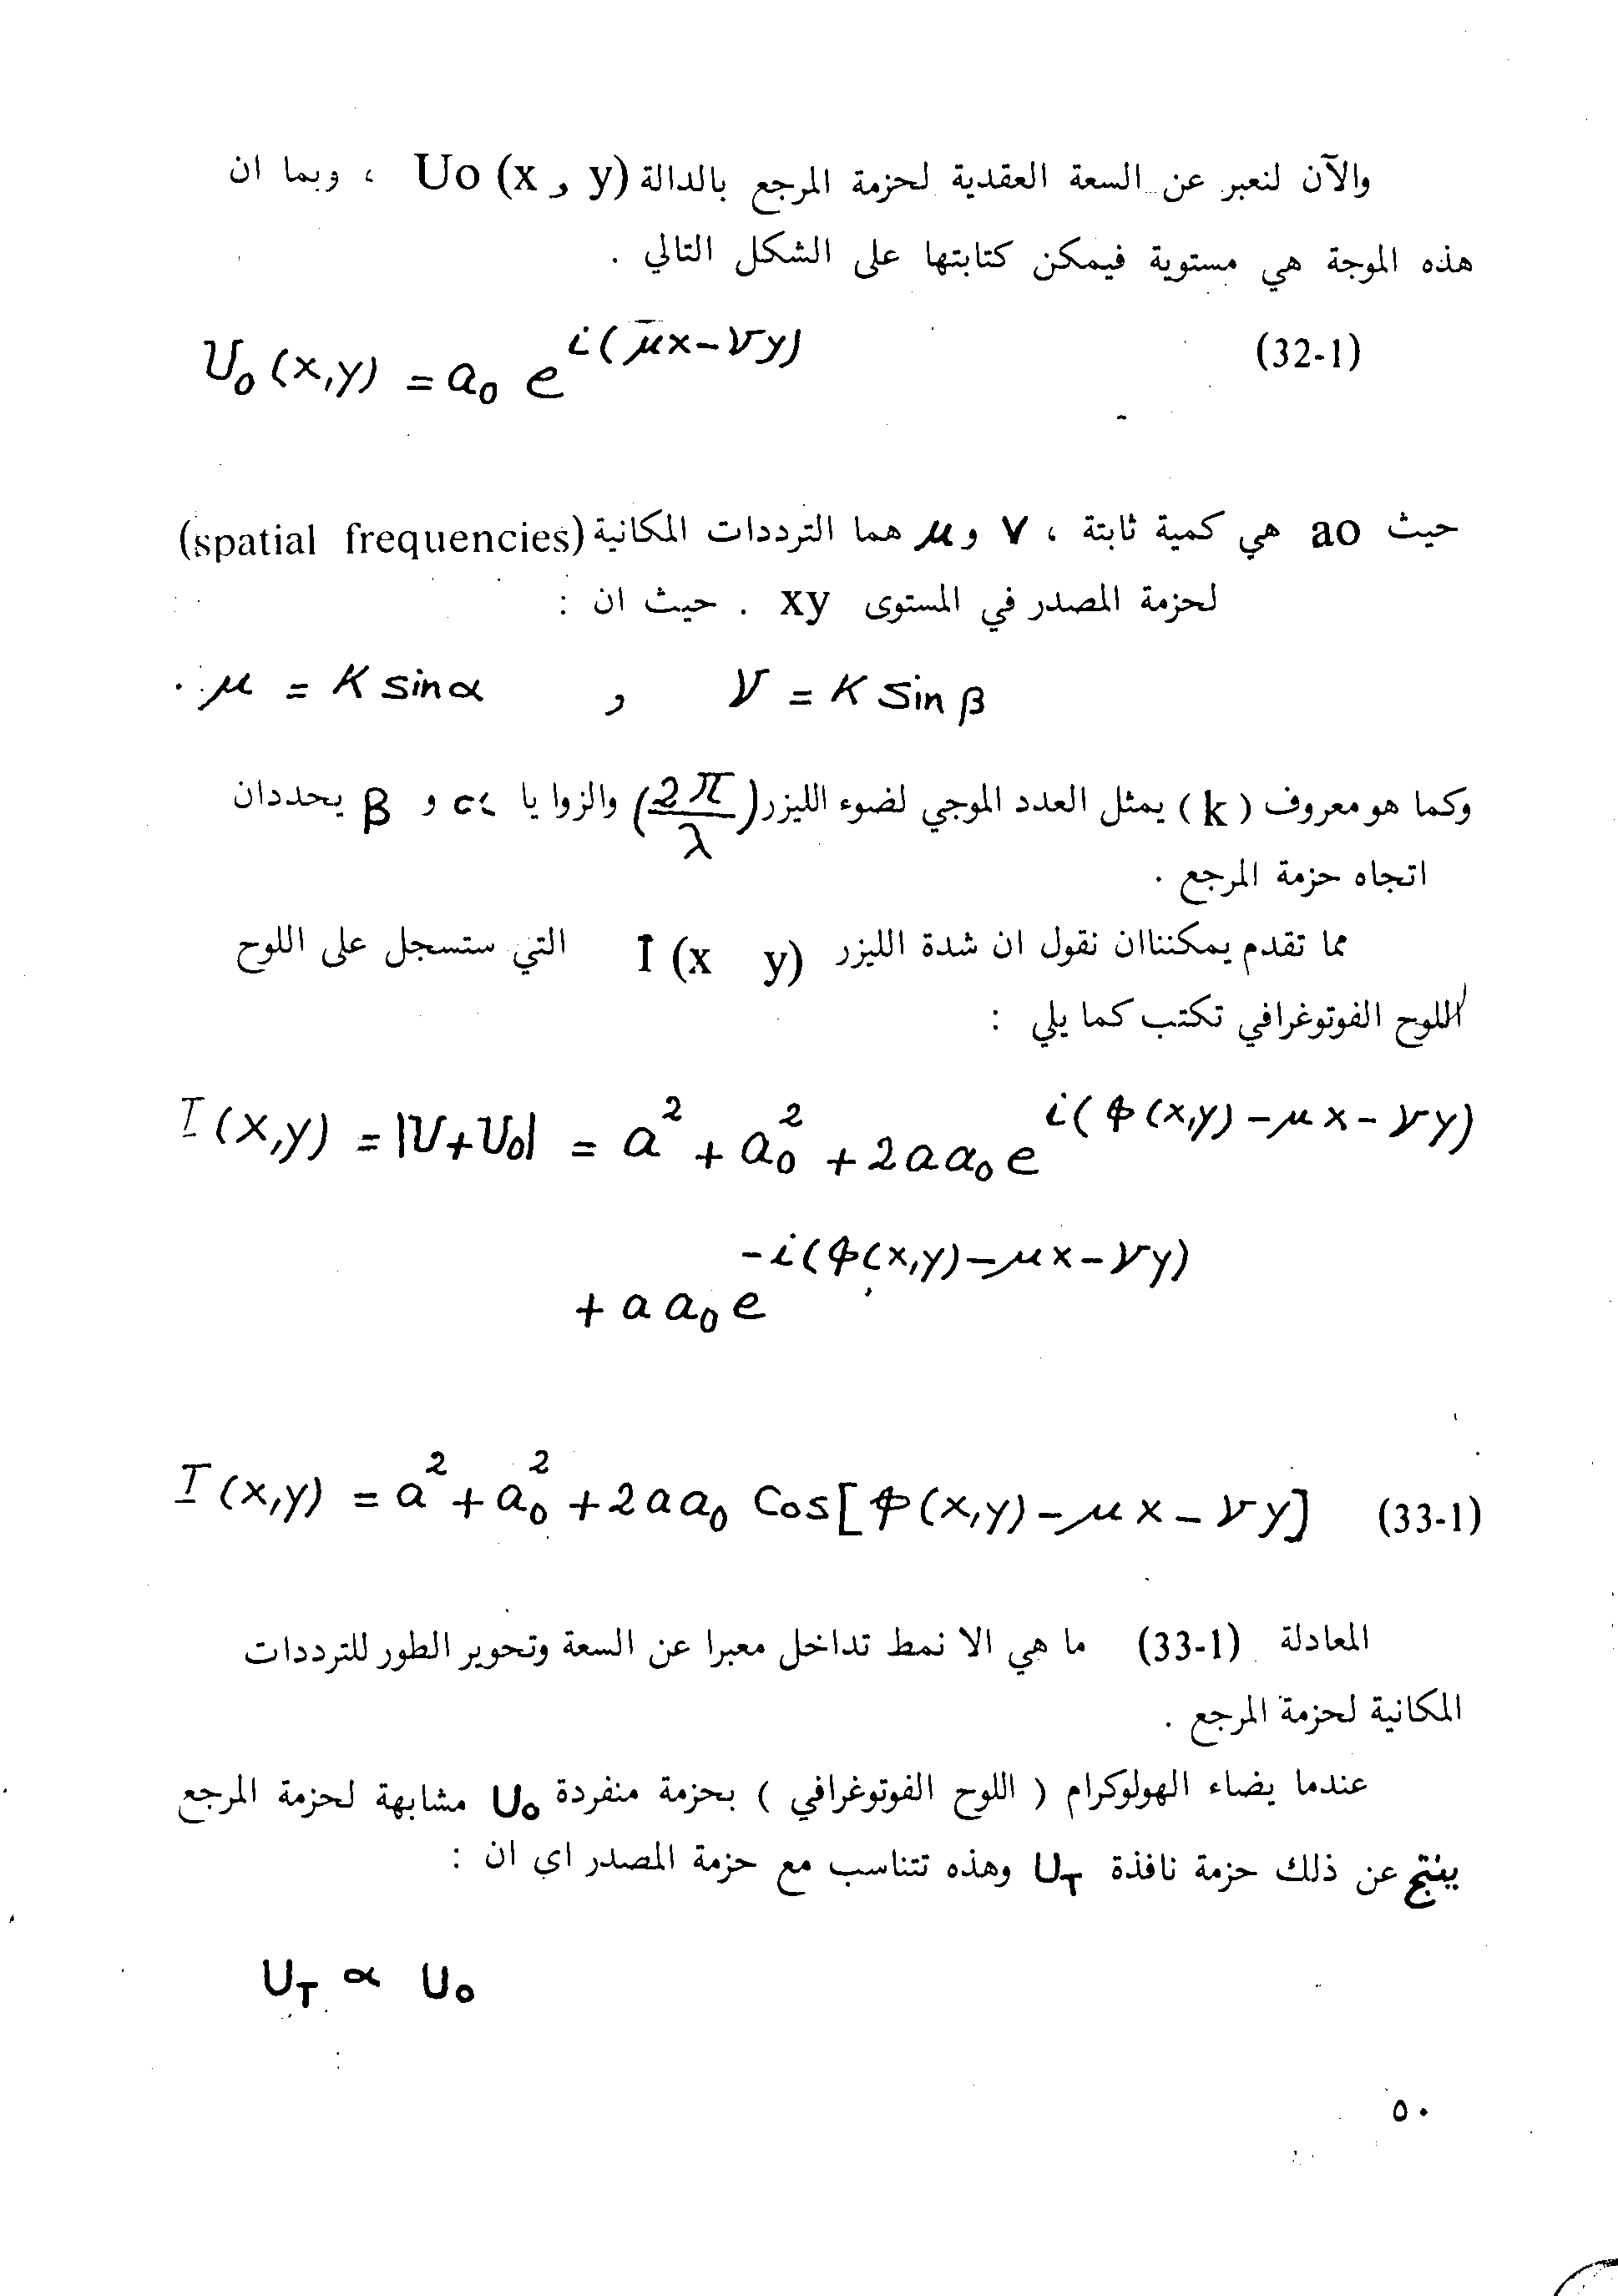 والآن لنعبر عن السعة العقدية لحزمة المرجع بالدالة Uo (x و y) ، وبما ان
هذه الموجة هي مستوية فيمكن كتابتها على الشكل التالي .
U₀(x,y) = a₀ e^{i(μx-νy)} (32-1)
حيث ao هي كمية ثابتة ، ν و μ هما الترددات المكانية (spatial frequencies)
لحزمة المصدر في المستوى xy . حيث ان :
μ = K sinα و ν = K sin β
وكما هو معروف ( k ) يمثل العدد الموجي لضوء الليزر (2π/λ) والزوا يا α و β يحددان
اتجاه حزمة المرجع .
مما تقدم يمكنناان نقول ان شدة الليزر I (x y) التي ستسجل على اللوح
اللوح الفوتوغرافي تكتب كما يلي :
I(x,y) = |U+U₀| = a² + a₀² + 2aa₀e^{i(φ(x,y)-μx-νy)}
+ aa₀e^{-i(φ(x,y)-μx-νy)}
I(x,y) = a² + a₀² + 2aa₀ Cos[φ(x,y)-μx-νy] (33-1)
المعادلة (33-1) ما هي الا نمط تداخل معبرا عن السعة وتحوير الطور للترددات
المكانية لحزمة المرجع .
عندما يضاء الهولوكرام ( اللوح الفوتوغرافي ) بحزمة منفردة U₀ مشابهة لحزمة المرجع
ينتج عن ذلك حزمة نافذة U_T وهذه تتناسب مع حزمة المصدر اي ان :
U_T ∝ U₀
٥٠